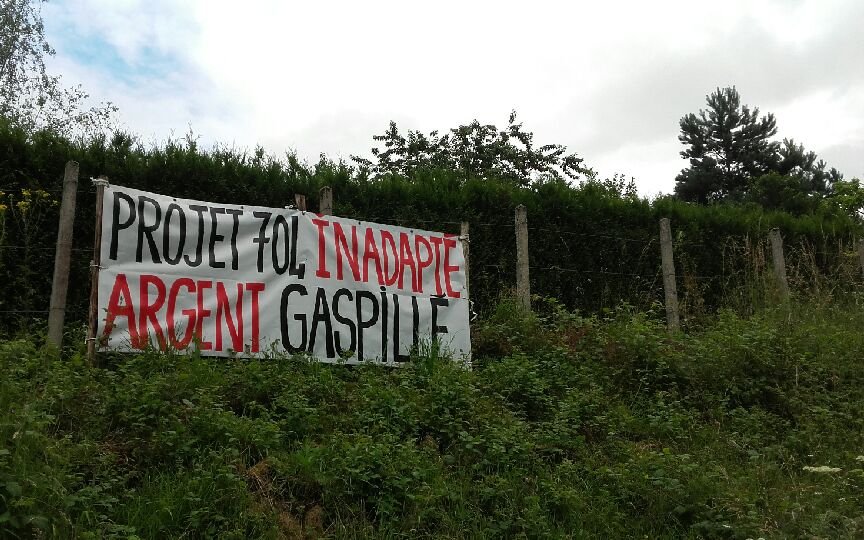 PROJET 704 INADAPTÉ
ARGENT GASPILLÉ